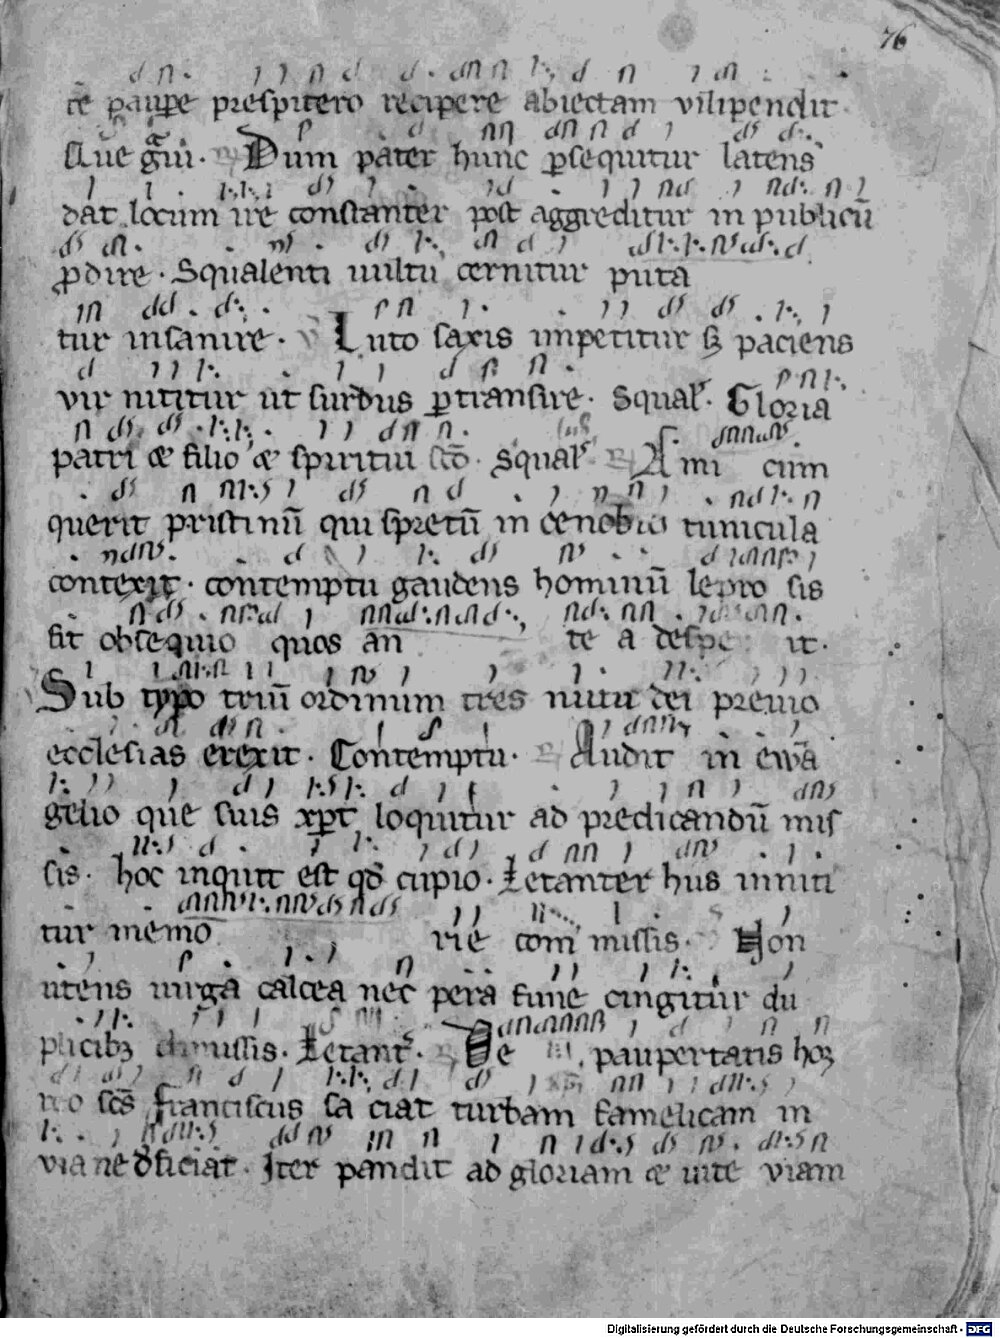 76
te paupe prespitero recipere abiectam vilipendit
Aue gui. Dum pater hunc psequitur latens
dat locum ire constanter post aggreditur in publicū
pdire. Squalenti uultu cernitur puta
tur insanire. V Luto saxis impetitur sz paciens
vir nititur ut surdus ptransire. Squal. Gloria
patri & filio & spiritui scō. Squal. Ami cum
querit pristinū qui spretū in cenobio tunicula
contexit. contemptu gaudens hominū lepro sis
fit obsequio quos an te a despe it.
Sub typo triū ordinum tres nutu dei premio
ecclesias erexit. Contemptu. Audit in ewā
gelio que suis xpt loquitur ad predicandū mis
sis. hoc inquit est qd cupio. Letanter hus inniti
tur memo rie com missis. Non
utens uirga calcea nec pera fune cingitur du
plicibz dimissis. Letant. De paupertatis hoz
reo scs franciscus sa ciat turbam famelicam in
via ne dficiat. Iter pandit ad gloriam & uite viam
Digitalisierung gefördert durch die Deutsche Forschungsgemeinschaft - DFG